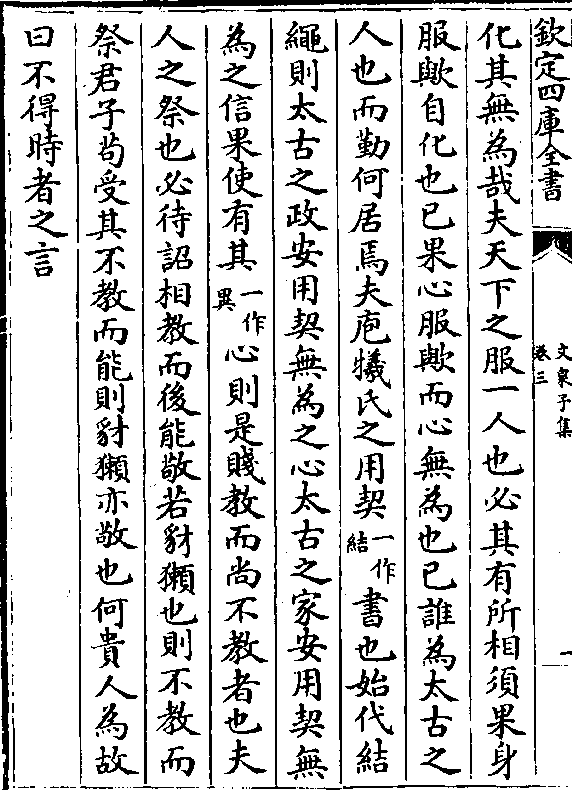 欽定四庫全書
文泉子集
卷三
一
化其無為哉夫天下之服一人也必其有所相須果身
服歟自化也已果心服歟而心無為也已誰為太古之
人也而勤何居焉夫庖犧氏之用契一作結書也始代結
繩則太古之政安用契無為之心太古之家安用契無
為之信果使有其一作異心則是賤教而尚不教者也夫
人之祭也必待詔相教而後能敬若豺獺也則不教而
祭君子苟受其不教而能則豺獺亦敬也何貴人為故
曰不得時者之言